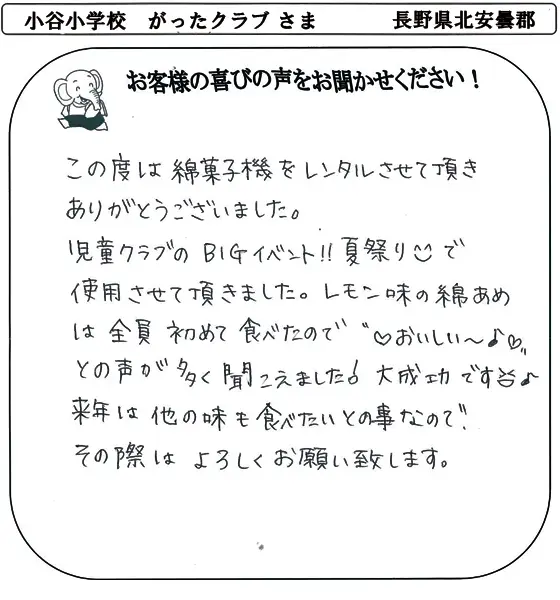 小谷小学校　がったクラブ さま　長野県北安曇郡
お客様の喜びの声をお聞かせください！
この度は 綿菓子機をレンタルさせて頂き
ありがとうございました。
児童クラブの BIGイベント!! 夏祭り☺で
使用させて頂きました。レモン味の綿あめ
は 全員 初めて 食べたので "♡おいしい～♪♡"
との声が 多く 聞こえました! 大成功です♪
来年は 他の味も 食べたいとの事なので、
その際は よろしくお願い致します。